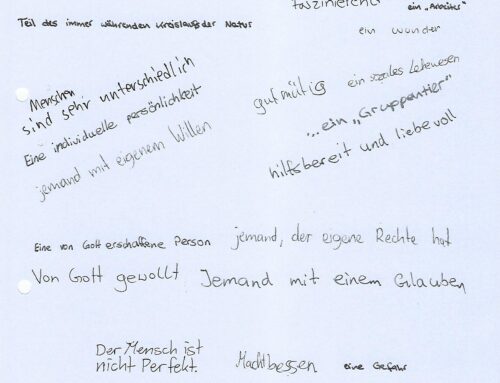 faszinierend
ein "Arbeiter"
Teil des immer währenden Kreislaufs der Natur
ein wunder
Menschen
sind sehr unterschiedlich
Eine individuelle persönlichkeit
jemand mit eigenem Willen
gutmütig
ein soziales Lebewesen
...ein „Gruppentier"
hilfsbereit und liebevoll
Eine von Gott erschaffene Person
jemand, der eigene Rechte hat
Von Gott gewollt
Jemand mit einem Glauben
Der Mensch ist
nicht Perfekt.
Machtbessen
eine Gefahr